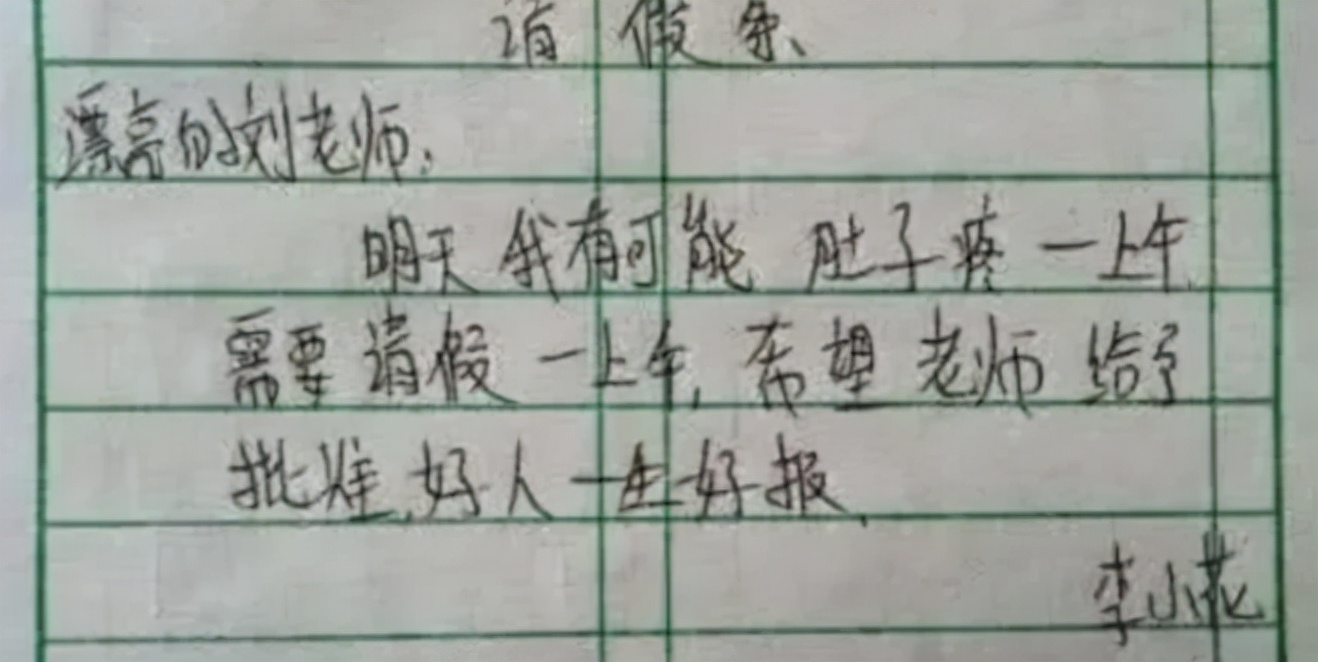 请假条
漂亮的刘老师:
明天我有可能肚子疼一上午,
需要请假一上午,希望老师给予
批准,好人一生好报,
李小花